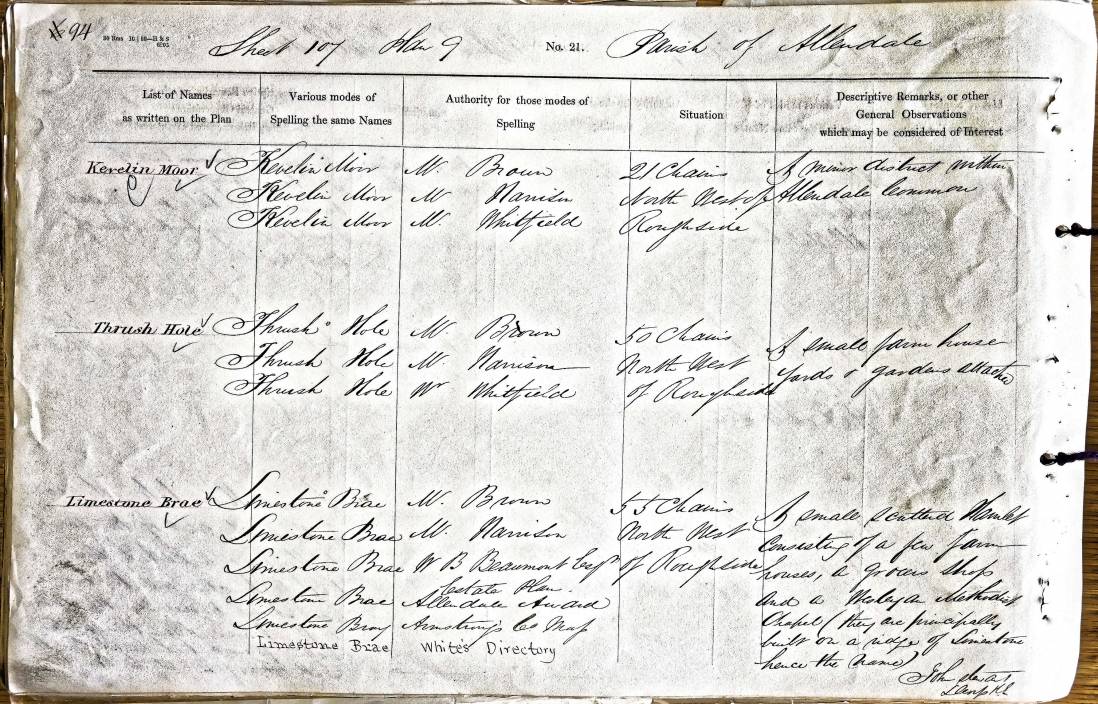 94
Sheet 107 Plan 9 No. 21. Parish of Allendale
List of Names as written on the Plan
Various modes of Spelling the same Names
Authority for those modes of Spelling
Situation
Descriptive Remarks, or other General Observations which may be considered of Interest
Kevelin Moor
Kevelin Moor M. Brown 21 Chains A minor district within
Kevelin Moor M Harrison North West of Allendale Common
Kevelin Moor M. Whitfield Roughside
Thrush Hole
Thrush Hole M. Brown 50 Chains A small farm house
Thrush Hole M. Harrison North West yards & gardens attached
Thrush Hole Wm Whitfield of Roughside
Limestone Brae
Limestone Brae M. Brown 55 Chains A small scattered Hamlet
Limestone Brae M. Harrison North West consisting of a few farm
Limestone Brae W B Beaumont Esqr of Roughside houses, a grocers shop
Estate Plan.
Limestone Brae Allendale Award and a Wesleyan Methodist
Limestone Bray Armstrong's Co Map Chapel (they are principally
Limestone Brae White's Directory built on a ridge of limestone
hence the name)
John